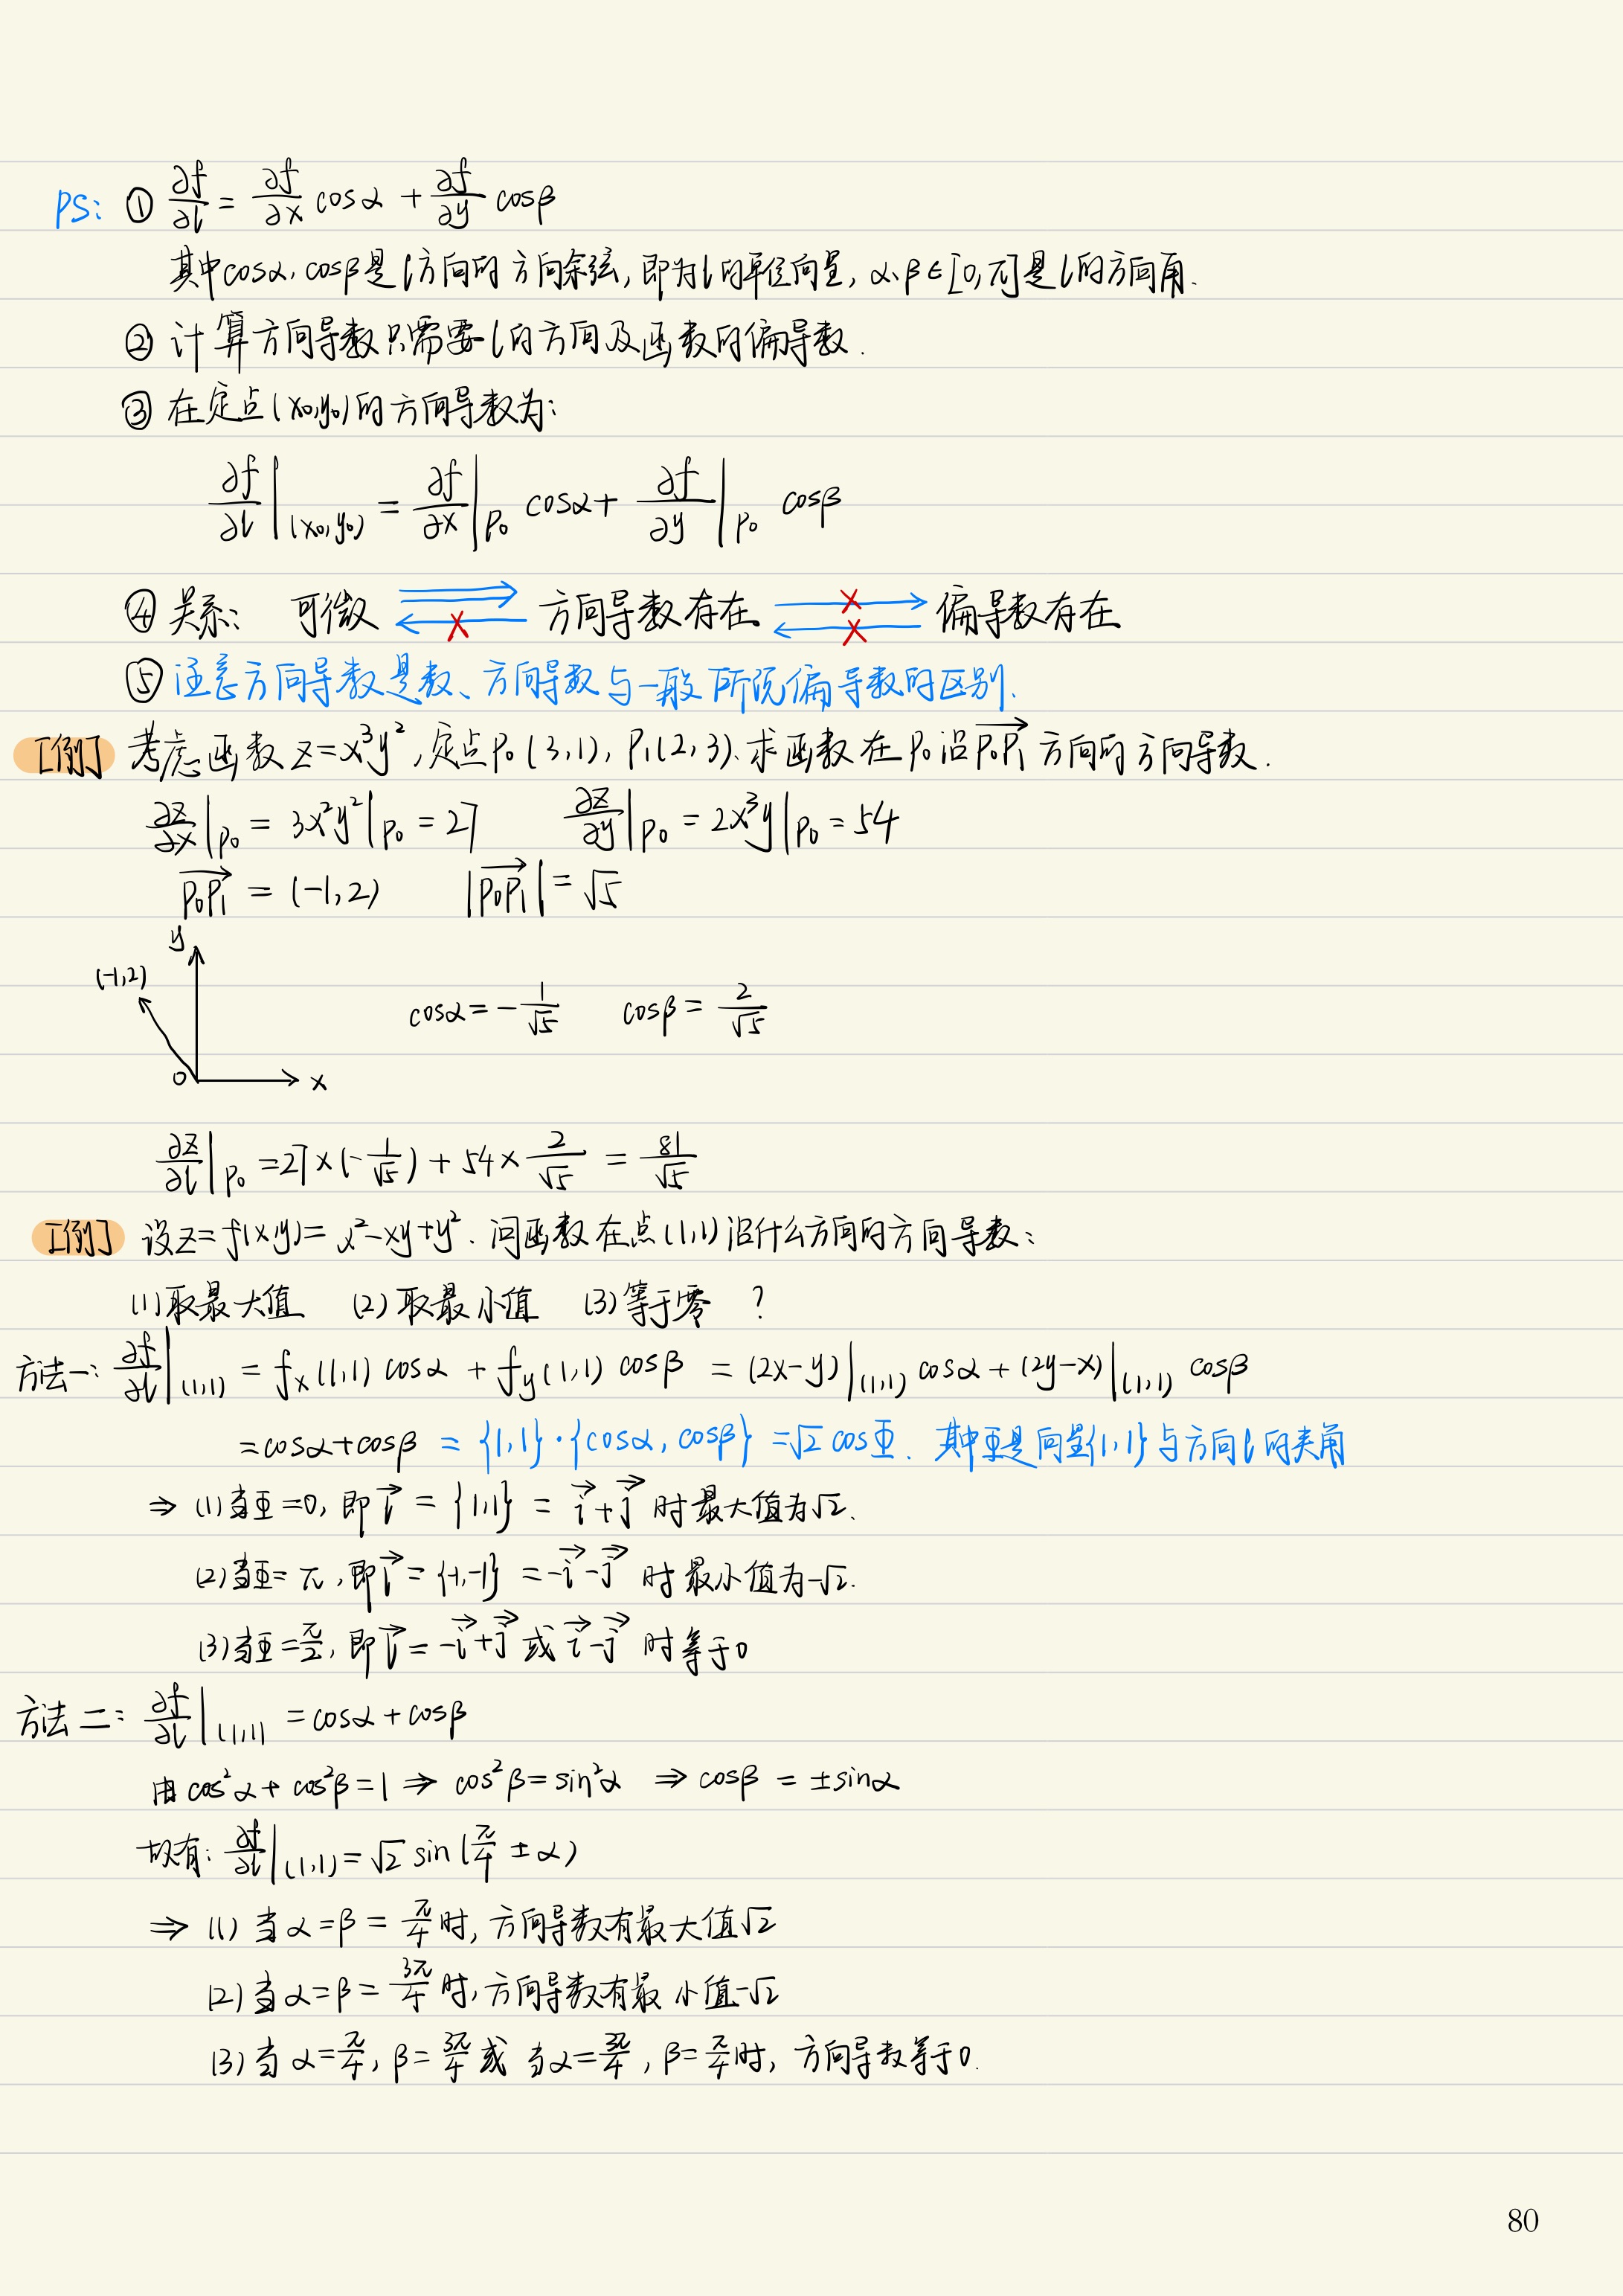 PS: ① ∂f/∂l = ∂f/∂x cosα + ∂f/∂y cosβ
其中cosα, cosβ是l方向的方向余弦, 即为l的单位向量, α、β∈[0,π]是l的方向角.
② 计算方向导数只需要l的方向及函数的偏导数.
③ 在定点(x₀,y₀)的方向导数为:
∂f/∂l|(x₀,y₀) = ∂f/∂x|P₀ cosα + ∂f/∂y|P₀ cosβ
④ 关系: 可微 方向导数存在 偏导数存在
⑤ 注意方向导数是数、方向导数与一般所说偏导数的区别.
[例] 考虑函数 z=x³y², 定点P₀(3,1), P₁(2,3). 求函数在P₀沿P₀P₁方向的方向导数.
∂z/∂x|P₀ = 3x²y²|P₀ = 27 ∂z/∂y|P₀ = 2x³y|P₀ = 54
P₀P₁ = (-1,2) |P₀P₁| = √5
y
(-1,2)
cosα = -1/√5 cosβ = 2/√5
0 x
∂z/∂l|P₀ = 27×(-1/√5) + 54×2/√5 = 81/√5
[例] 设z=f(x,y)=x²-xy+y². 问函数在点(1,1)沿什么方向的方向导数:
(1)取最大值 (2)取最小值 (3)等于零 ?
方法一: ∂f/∂l|(1,1) = fx(1,1) cosα + fy(1,1) cosβ = (2x-y)|(1,1) cosα + (2y-x)|(1,1) cosβ
= cosα+cosβ = {1,1}·{cosα, cosβ} = √2 cosΦ. 其中Φ是向量{1,1}与方向l的夹角
⇒ (1)当Φ=0, 即l = {1,1} = i+j 时最大值为√2.
(2)当Φ=π, 即l = {-1,-1} = -i-j 时最小值为-√2.
(3)当Φ=π/2, 即l = -i+j 或 i-j 时等于0
方法二: ∂f/∂l|(1,1) = cosα + cosβ
由cos²α + cos²β = 1 ⇒ cos²β = sin²α ⇒ cosβ = ±sinα
故有: ∂f/∂l|(1,1) = √2 sin(π/4 ± α)
⇒ (1) 当α=β=π/4时, 方向导数有最大值√2
(2)当α=β=3π/4时, 方向导数有最小值-√2
(3)当α=π/4, β=3π/4 或 当α=3π/4, β=π/4时, 方向导数等于0.
80